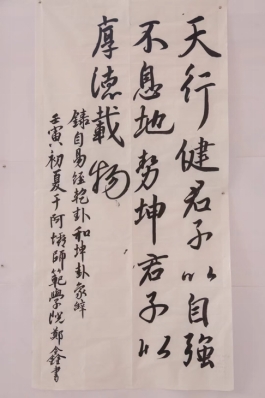 天行健君子以自強
不息地勢坤君子以
厚德載物
錄自易經乾卦和坤卦象辭
壬寅初夏于阿壩師範學院鄭鑫書